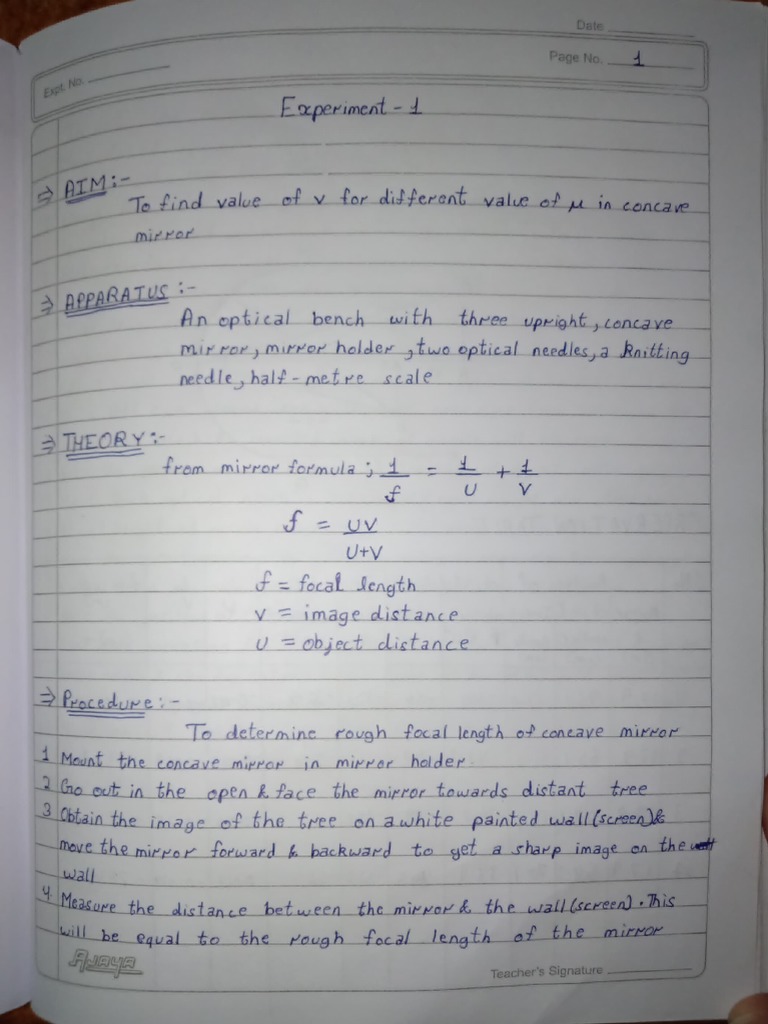 Date
Expt. No.
Page No. 1
Experiment - 1
⇒ AIM :-
To find value of v for different value of μ in concave
mirror
⇒ APPARATUS :-
An optical bench with three upright, concave
mirror, mirror holder, two optical needles, a knitting
needle, half-metre scale
⇒ THEORY :-
from mirror formula ; 1/f = 1/U + 1/V
f = UV/U+V
f = focal length
v = image distance
u = object distance
⇒ Procedure :-
To determine rough focal length of concave mirror
1 Mount the concave mirror in mirror holder
2 Go out in the open & face the mirror towards distant tree
3 Obtain the image of the tree on a white painted wall (screen) &
move the mirror forward & backward to get a sharp image on the
wall
4. Measure the distance between the mirror & the wall (screen). This
will be equal to the rough focal length of the mirror
Ajaya
Teacher's Signature